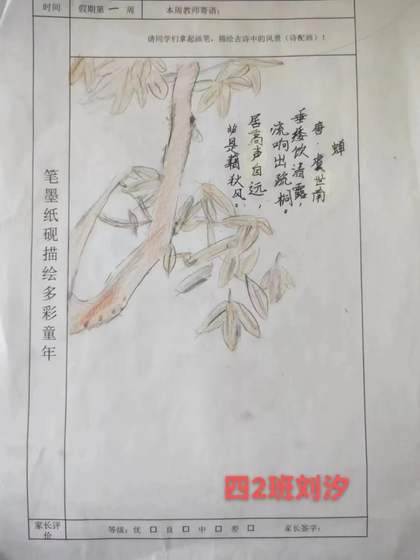 时间 假期第一周 本周教师寄语：
请同学们拿起画笔，描绘古诗中的风景（诗配画）！
笔墨纸砚描绘多彩童年
蝉
唐·虞世南
垂緌饮清露，
流响出疏桐。
居高声自远，
非是藉秋风。
四2班刘汐
家长评价
等级：优 □ 良 □ 中 □ 差 □ 家长签字：